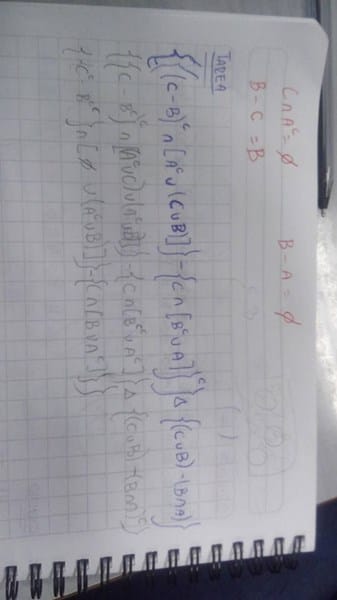 C∩Aᶜ=∅ B-A=∅
B-C=B
TAREA
{{(C-B)ᶜ∩[Aᶜ∪(C∪B)]}-{C∩[Bᶜ∪A]}ᶜ}Δ{(C∪B)-(B∩A)}
{{(C-Bᶜ)ᶜ∩[(Aᶜ∪C)∪(Aᶜ∪B)]}-{C∩[Bᶜ∪Aᶜ]}Δ{(C∪B)-(B∩
{{Cᶜ-Bᶜ}∩[∅∪(Aᶜ∪B)]}-{C∩[B∪Aᶜ]}}